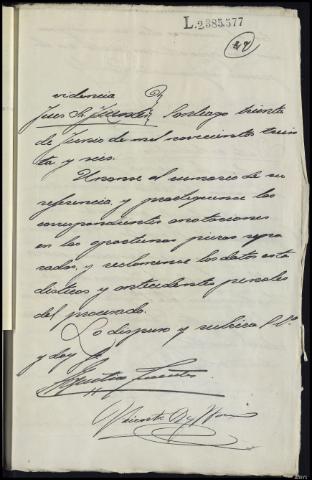 L.2385577
videncia
Juez Sr. Santiago treinta
de Junio de mil novecientos trein
ta y seis.
Unanse al sumario de su
referencia, y practiquense las
correspondientes anotaciones
en las oportunas piezas sepa
radas, y reclamense los datos esta
disticos y antecedentes penales
del procesado.
Lo dispuso y rubrica S.Sª.
y doy fe.